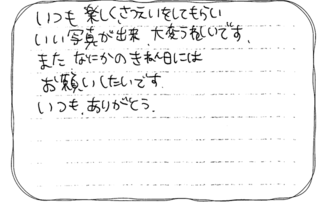 いつも 楽しくさつえいをしてもらい
いい写真が出来、大変うれしいです。
また なにかのきねん日には
お願いしたいです
いつも、ありがとう。